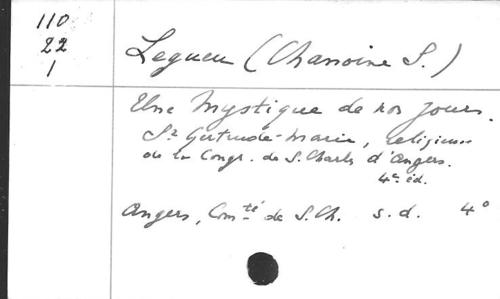 110
22
1
Legueu (Chanoine S.)
Une Mystique de nos jours.
Sr Gertrude-Marie, religieuse
de la Congr. de S. Charles d'Angers.
4e éd.
Angers, Comté de S. Ch. s.d. 4°